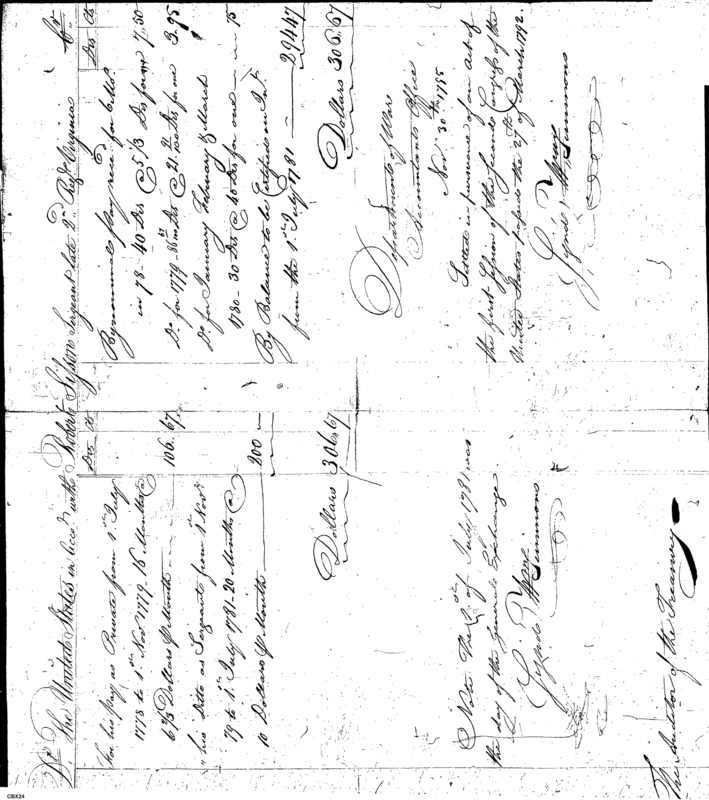 Dr. The United States in Acct. with Robert Sergeant late 2nd Regt Virginia Cr.
Ds Cts
For his pay as Private from 1st July
1778 to 1st Novr 1779 16 Months @
6 2/3 Dollars pr Month 106.67
" his Ditto as Sergeant from 1st Novr
79 to 1st July 1781 - 20 Months @
10 Dollars pr Month 200
Dollars 306.67
Ds Cts
By nominal pay recd for Octo.
in 78 - 40 Ds @ 5 1/3 Ds for one 7.50
Do for 1779 - Ds @ 21. Ds for one 3.95
Do for January February & March
1780 - 30 Ds @ 40 Ds for one 75
By Balance to be Certified on Int.
from the 1st July 1781 294.47
Dollars 306.67
Note. The 1st of July 1781 was
the day of the General Exchange
Signed Wm Simmons
Department of War
Accountants Office
Novr 30th 1795
Settled in pursuance of an act of
the first Session of the Second Congress of the
United States passed the 27th March 1792.
Signed Wm Simmons
The Auditor of the Treasury
CBX24